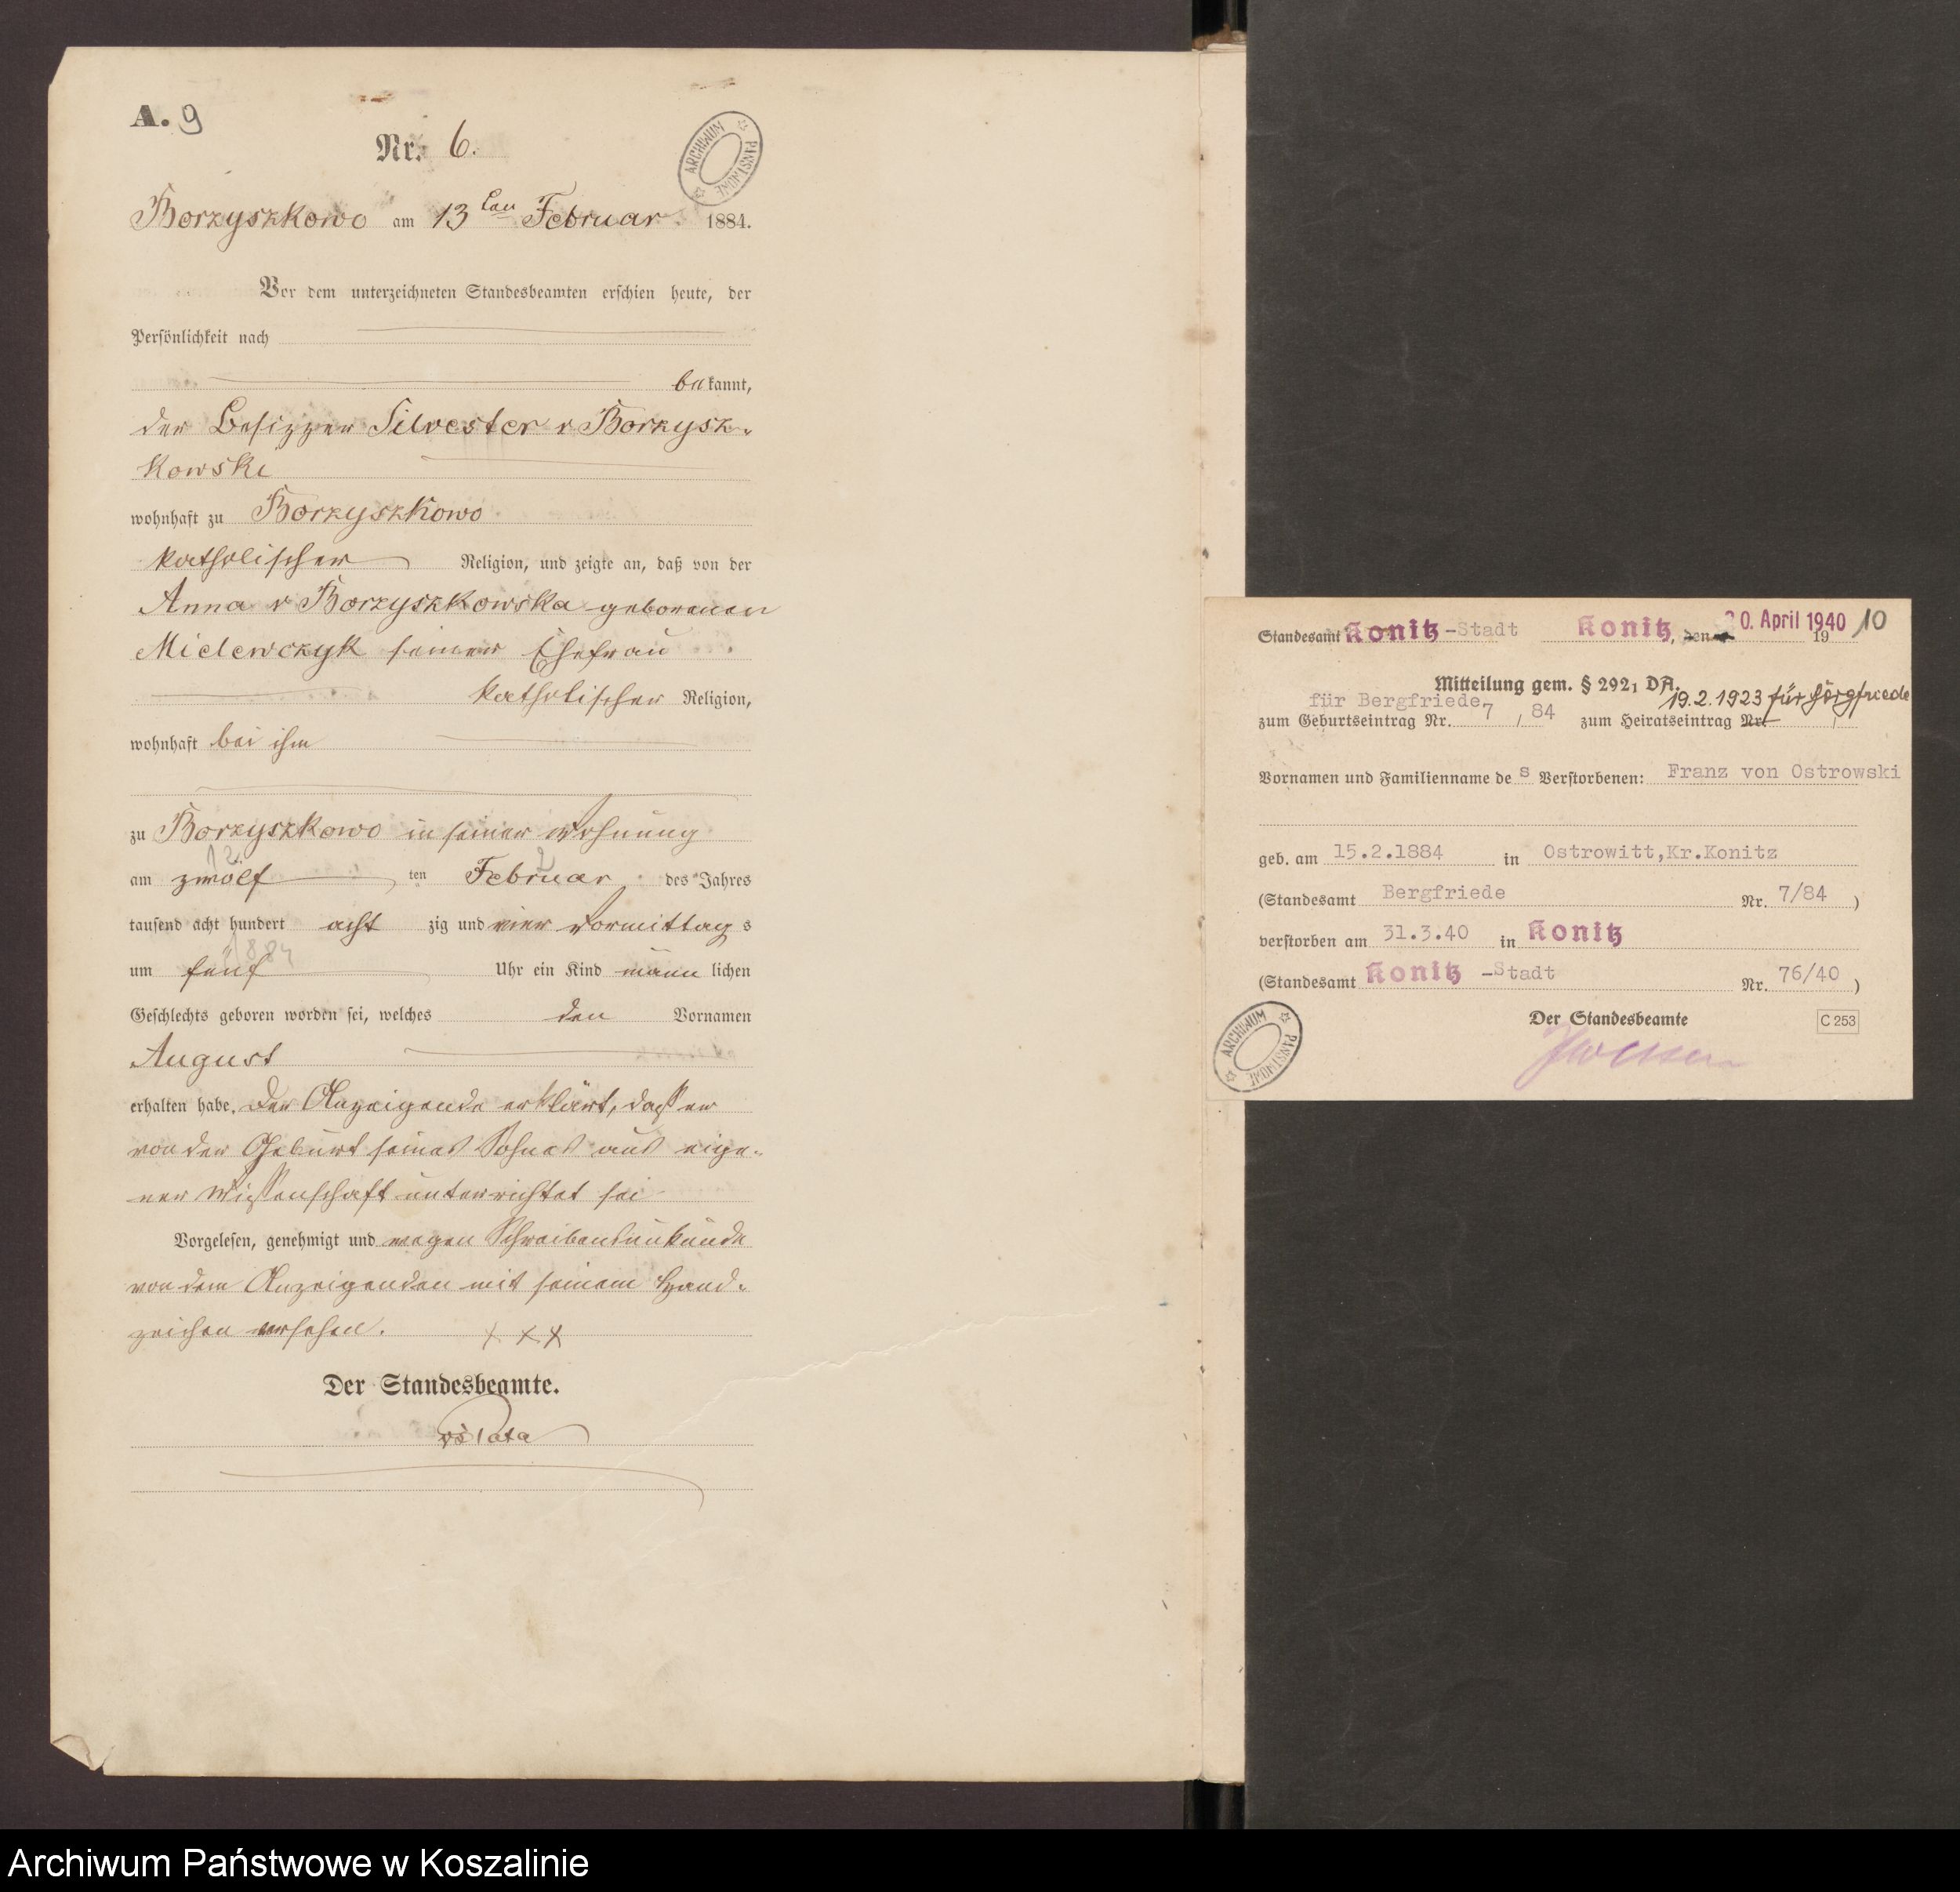 A. 9
Nr. 6.
ARCHIWUM PAŃSTWOWE
Borzyszkowo am 13ten Februar 1884.
Vor dem unterzeichneten Standesbeamten erschien heute, der
Persönlichkeit nach
bekannt,
der Besizzer Silvester v Borzysz-
kowski
wohnhaft zu Borzyszkowo
katholischer Religion, und zeigte an, daß von der
Anna v Borzyszkowska geborenen
Mielewczyk seiner Ehefrau
katholischer Religion,
wohnhaft bei ihm
zu Borzyszkowo in seiner Wohnung
12 2
am zwölf ten Februar des Jahres
tausend acht hundert acht zig und vier Vormittag s
1884
um fünf Uhr ein Kind männ lichen
Geschlechts geboren worden sei, welches den Vornamen
August
erhalten habe. Der Anzeigende erklärt, daß er
von der Geburt seines Sohnes aus eige-
ner Wissenschaft unterrichtet sei
Vorgelesen, genehmigt und wegen Schreibensunkunde
von dem Anzeigenden mit seinem Hand-
zeichen versehen. x x x
Der Standesbeamte.
Standesamt Konitz-Stadt Konitz, den 20. April 1940 19 10
Mitteilung gem. § 292₁ DA.
für Bergfriede 19.2.1923 für Jörgfriede
zum Geburtseintrag Nr. 7 / 84 zum Heiratseintrag Nr. /
Vornamen und Familienname de s Verstorbenen: Franz von Ostrowski
geb. am 15.2.1884 in Ostrowitt,Kr.Konitz
(Standesamt Bergfriede Nr. 7/84 )
verstorben am 31.3.40 in Konitz
(Standesamt Konitz -Stadt Nr. 76/40 )
Der Standesbeamte C 253
ARCHIWUM PAŃSTWOWE
Archiwum Państwowe w Koszalinie